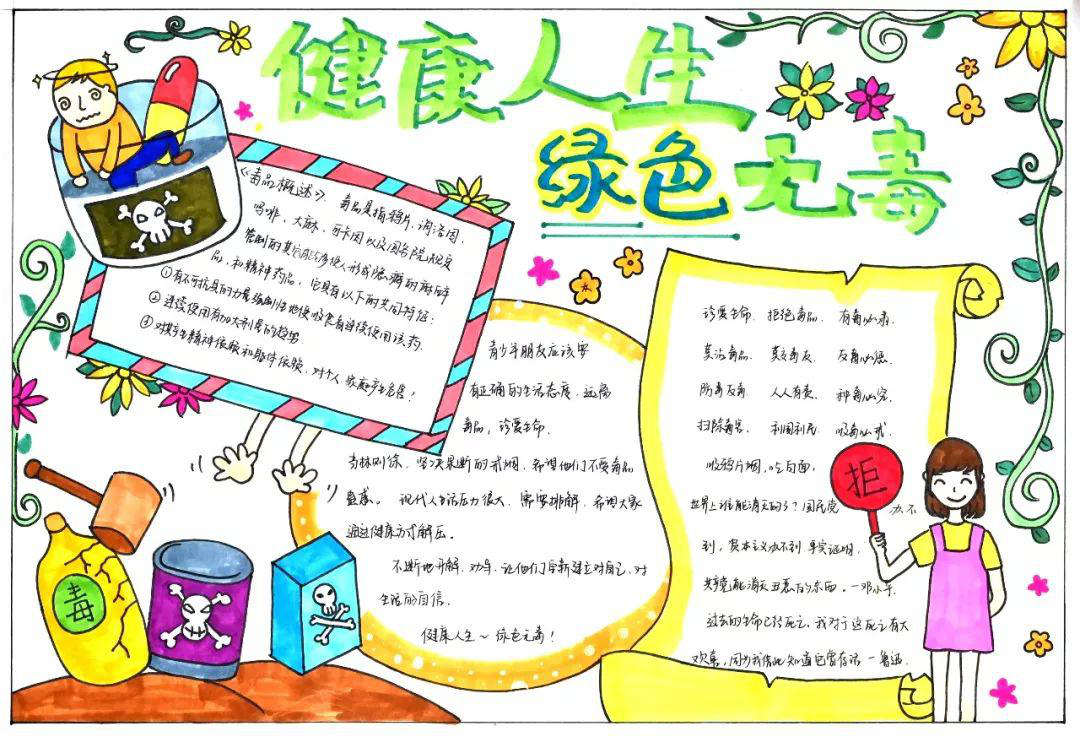 健康人生
绿色无毒
《毒品概述》：毒品是指鸦片、海洛因、
吗啡、大麻、可卡因以及国务院规定
管制的其它能够使人形成瘾癖的麻醉
品，和精神药品，它具有以下的共同特征：
①有不可抗拒的力量强制性地使吸食者连续使用该药.
②连续使用有加大剂量的趋势
③对产生精神依赖和躯体依赖，对个人、家庭产生危害！
青少年朋友应该要
有正确的生活态度，远离
毒品，珍爱生命.
林则徐，坚决果断的戒烟，希望他们不要毒品
现代人生活压力很大，需要排解，希望大家
通过健康方式解压。
不断地开解，劝导，让他们重新建立对自己，对
生活的自信.
健康人生~绿色无毒！
珍爱生命. 拒绝毒品. 有毒必肃.
莫沾毒品. 莫交毒友. 贩毒必惩.
防毒反毒. 人人有责. 种毒必究.
扫除毒害. 利国利民. 吸毒必戒.
吸鸦片烟，吃白面，
世界上谁能消灭的了？国民党办不
到，资本主义办不到 事实证明.
共产党能消灭丑恶的东西. —邓小平
过去的生命已经死亡，我对于这死亡有大
欢喜，因为我借此知道它曾存活 —鲁迅.
拒
毒